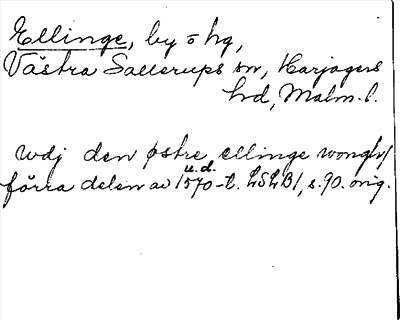 Ellinge, by o hg,
Västra Sallerups sn, Harjagers
hd, Malm. l.
wdj den østre ellinge wongh/
u.d.
förra delen av 1570-t. LSLB1, s. 90. orig.